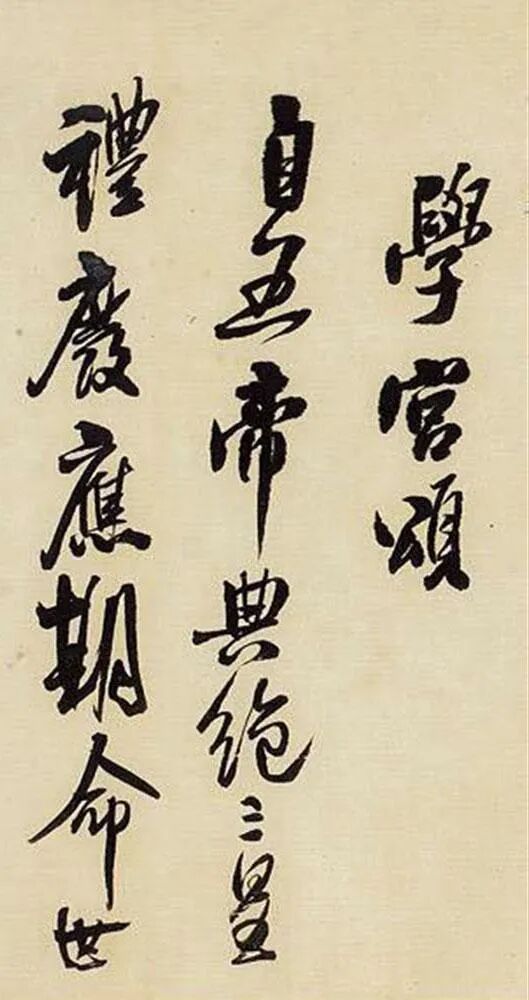 學宮頌
自五帝典絶二皇
禮廢應期命世